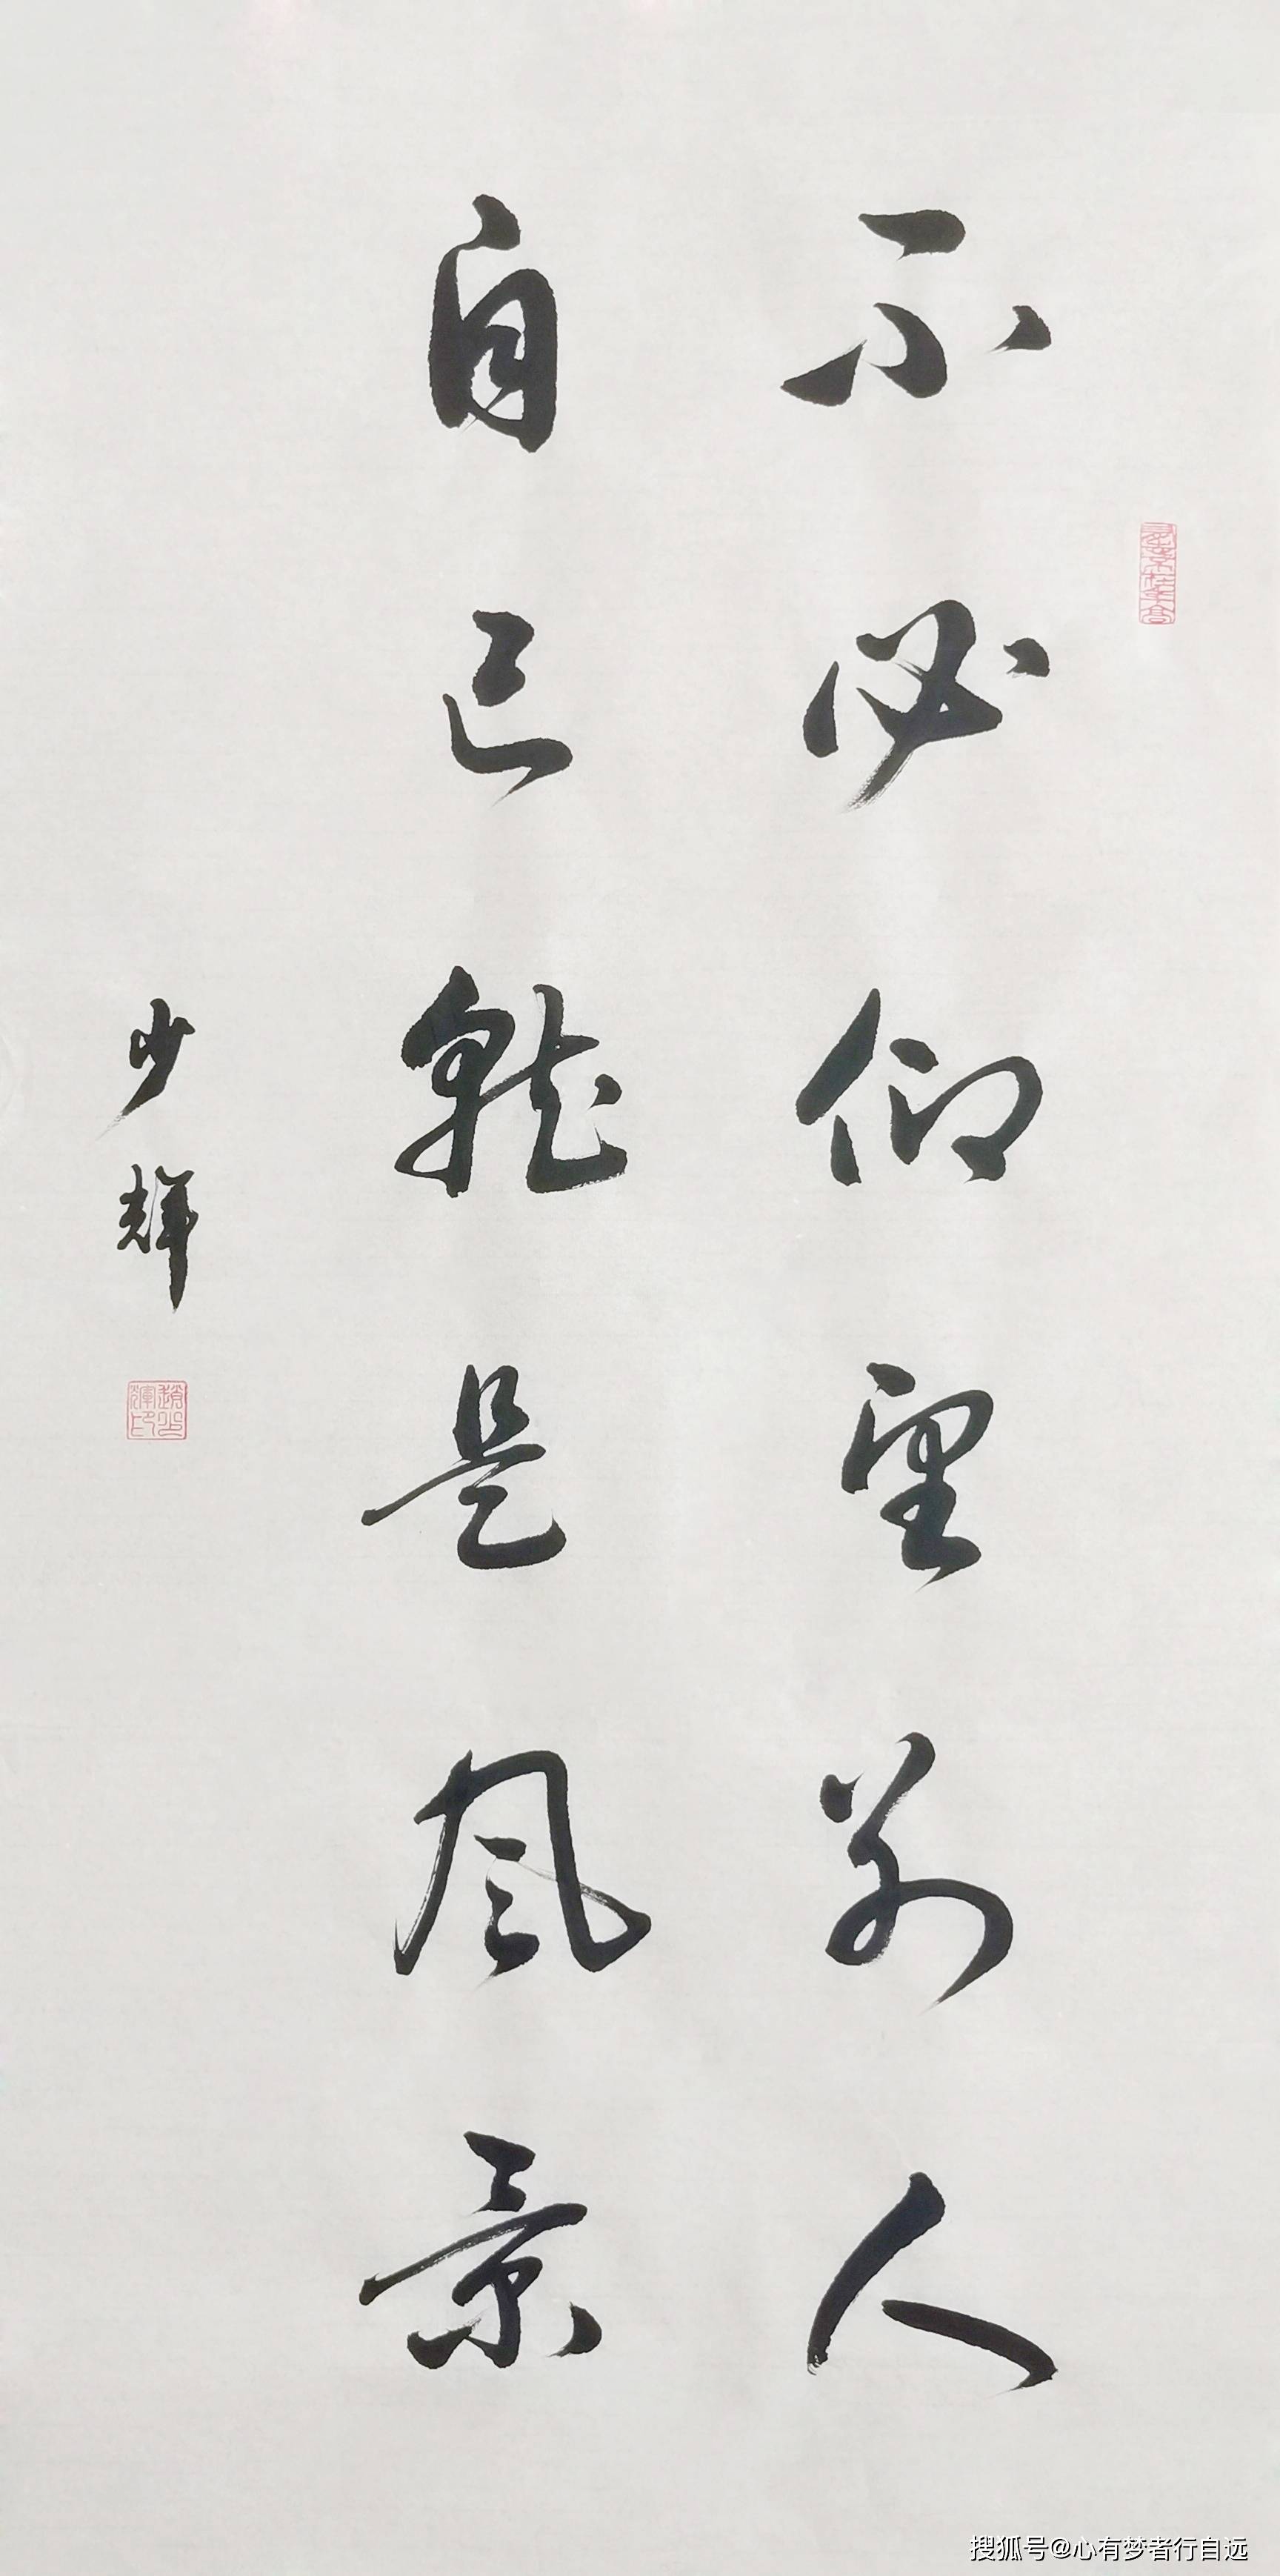 不必仰望别人
自己就是风景
少辉
搜狐号@心有梦者行自远